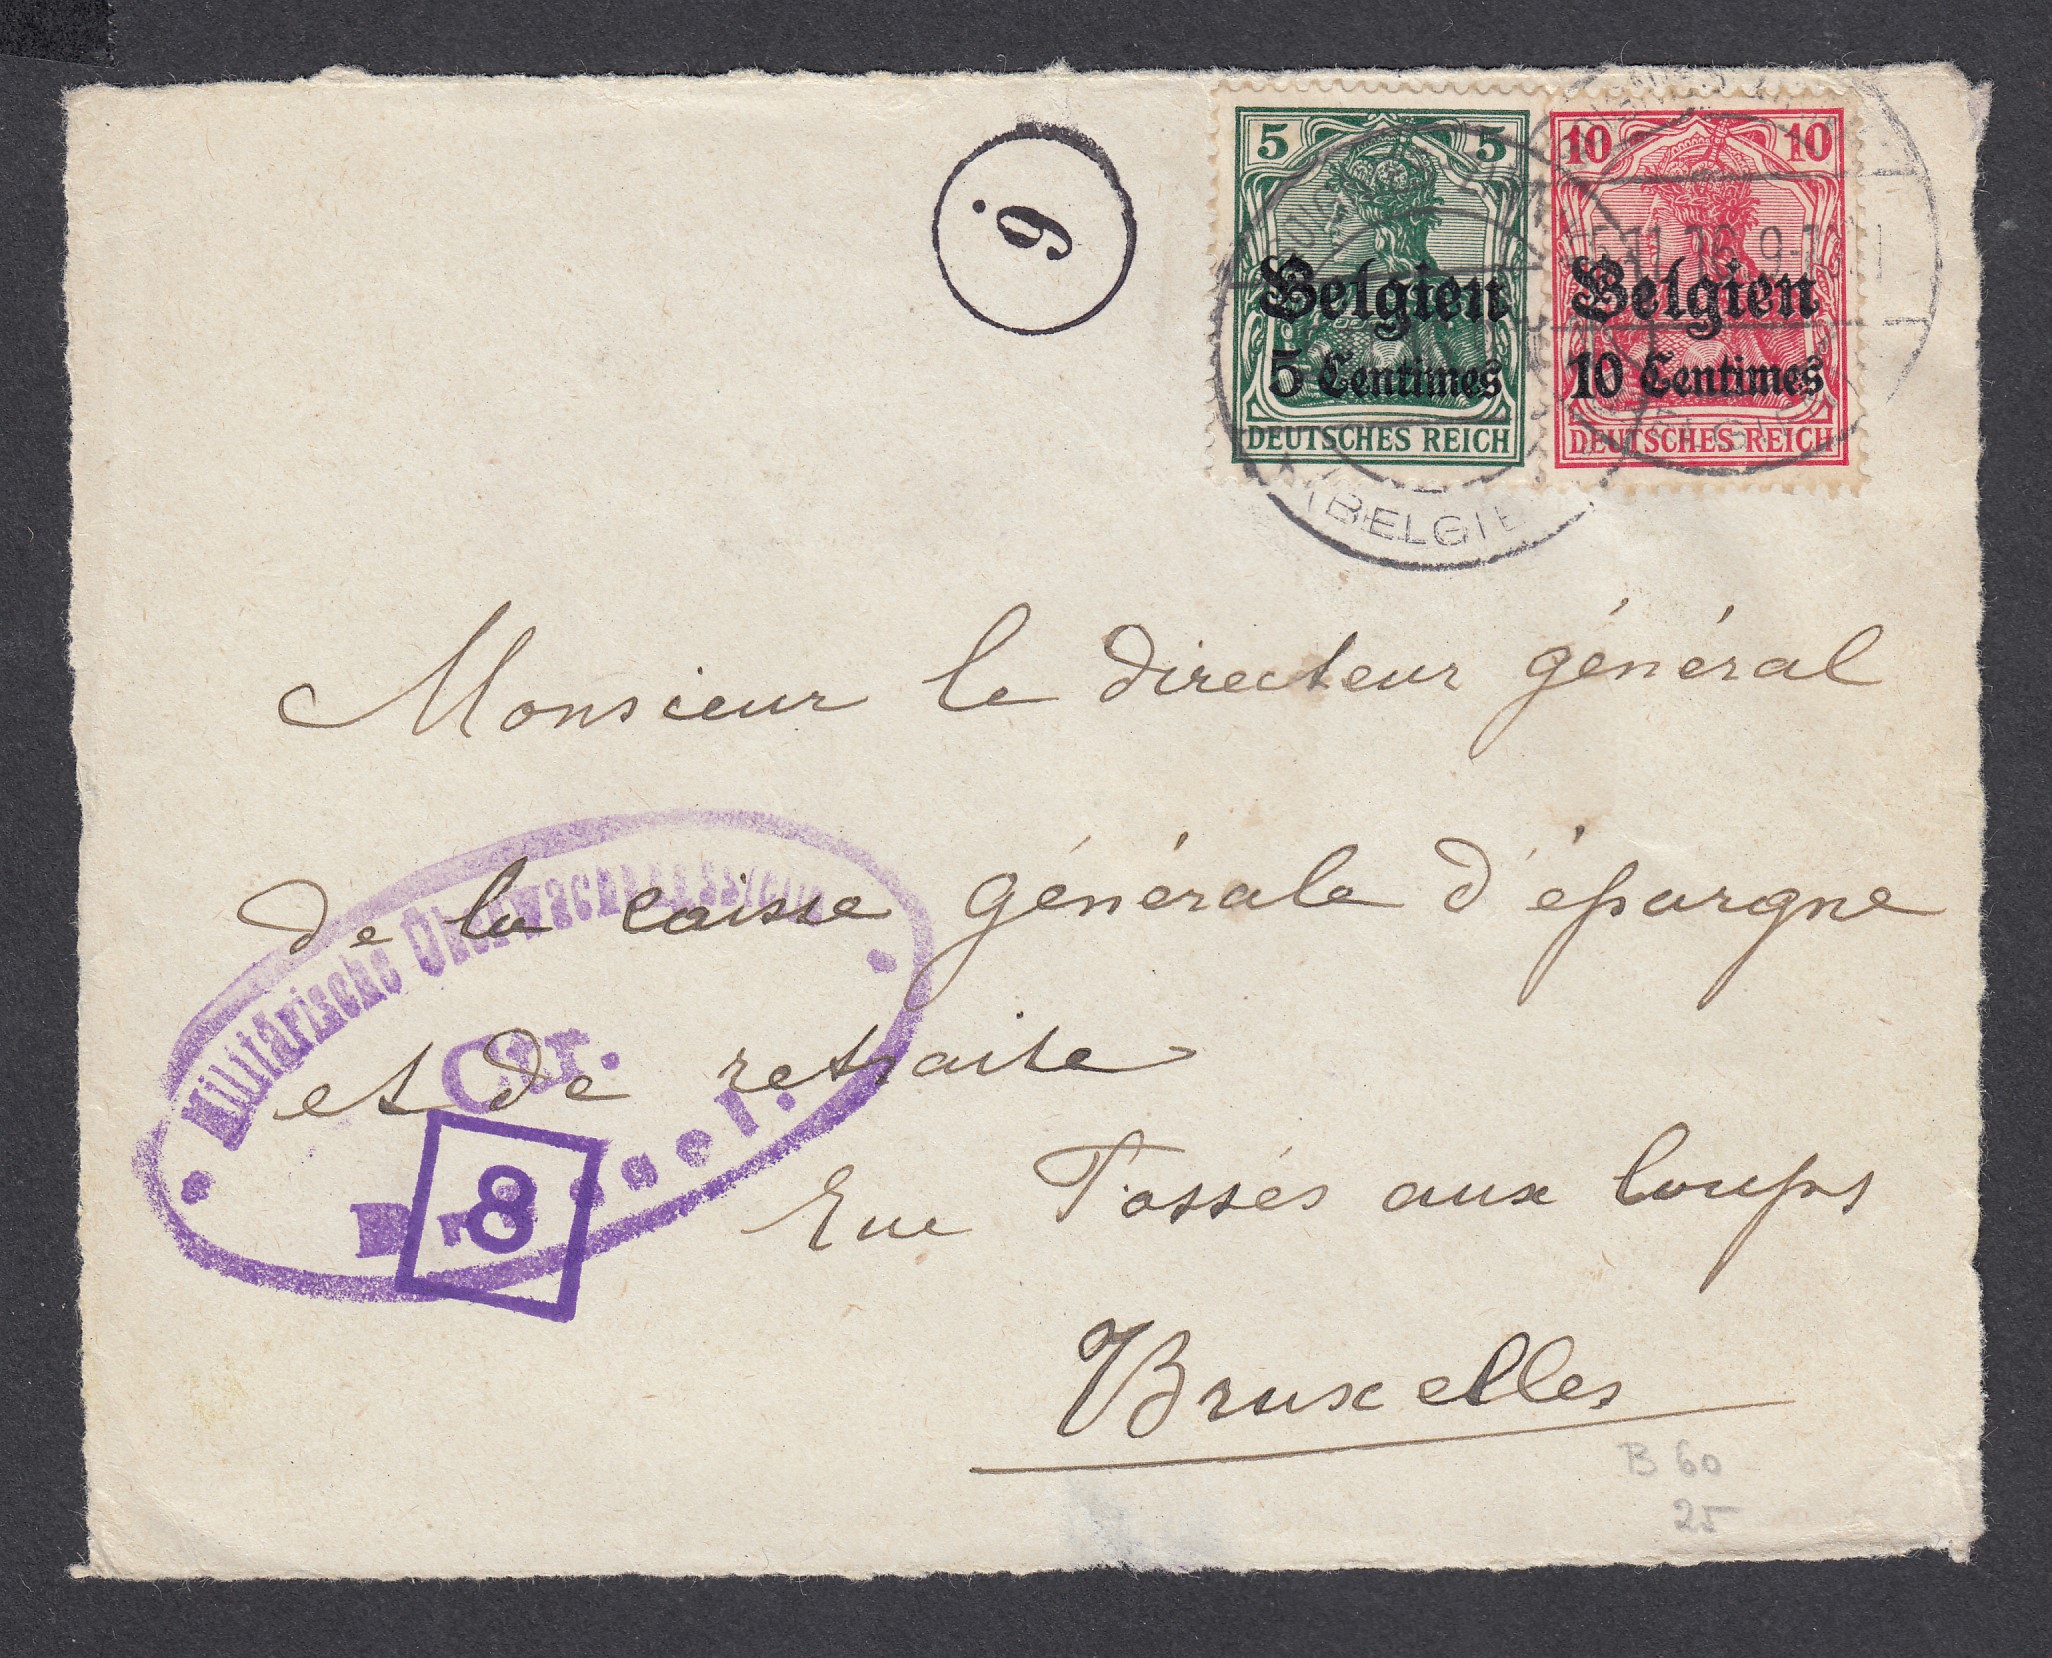 9
5 5
Belgien
5 Centimes
DEUTSCHES REICH
10 10
Belgien
10 Centimes
DEUTSCHES REICH
11.16. 9-
(BELGIE
Monsieur le directeur général
de la caisse générale d'épargne
et de retraite
Rue Fossés aux loups
Bruxelles
Militärische
Cur.
8
B 60
25